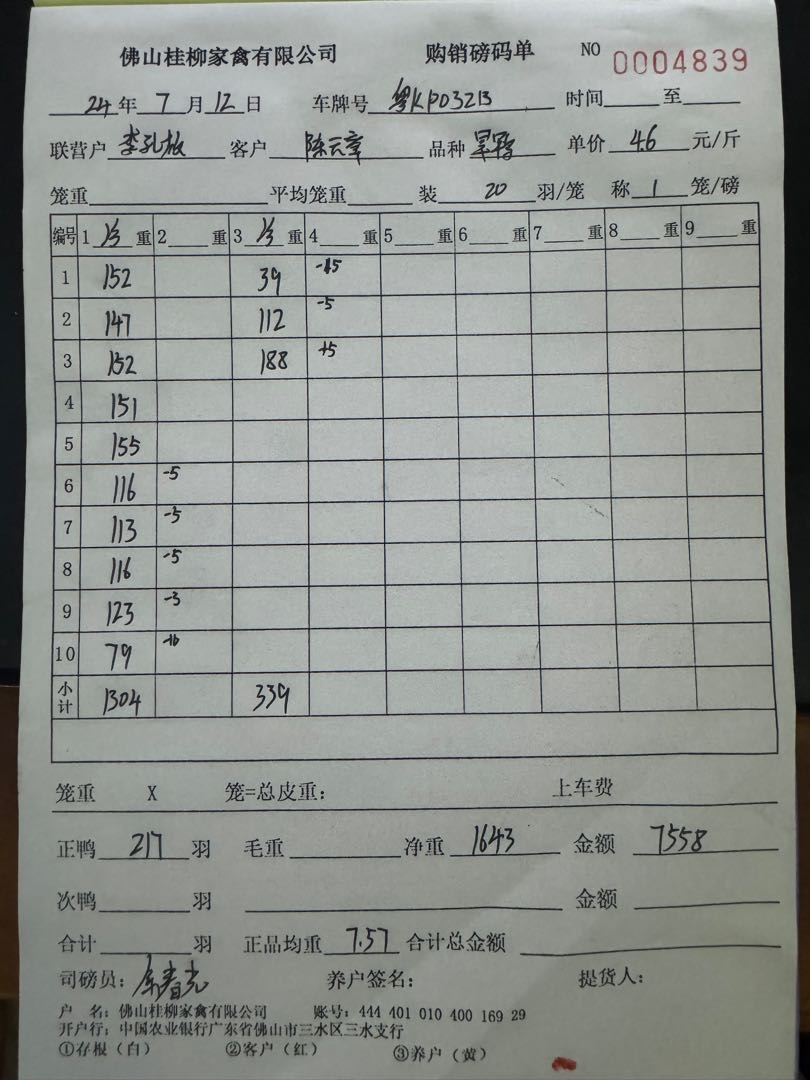 佛山桂柳家禽有限公司 购销磅码单 NO 0004839
24年7月12日 车牌号 粤KP0321B 时间 至
联营户 李孔板 客户 陈云章 品种 单价 4.6 元/斤
笼重 平均笼重 装 20 羽/笼 称 1 笼/磅
编号 1 重 2 重 3 重 4 重 5 重 6 重 7 重 8 重 9 重
1 152 39 -15
2 147 112 -5
3 152 188 +5
4 151
5 155
6 116 -5
7 113 -5
8 116 -5
9 123 -3
10 79 -10
小计 1304 339
笼重 X 笼=总皮重: 上车费
正鸭 217 羽 毛重 净重 1643 金额 7558
次鸭 羽 金额
合计 羽 正品均重 7.57 合计总金额
司磅员: 养户签名: 提货人:
户 名: 佛山桂柳家禽有限公司 账号: 444 401 010 400 169 29
开户行: 中国农业银行广东省佛山市三水区三水支行
①存根（白） ②客户（红） ③养户（黄）